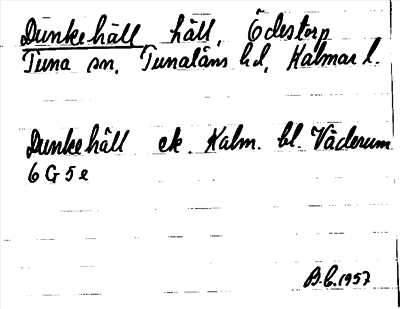 Dunkehäll häll, Ödestorp
Tuna sn, Tunaläns hd, Kalmar l.
Dunkehäll ek. Kalm. bl. Väderum
6 G 5 e
B.L. 1957